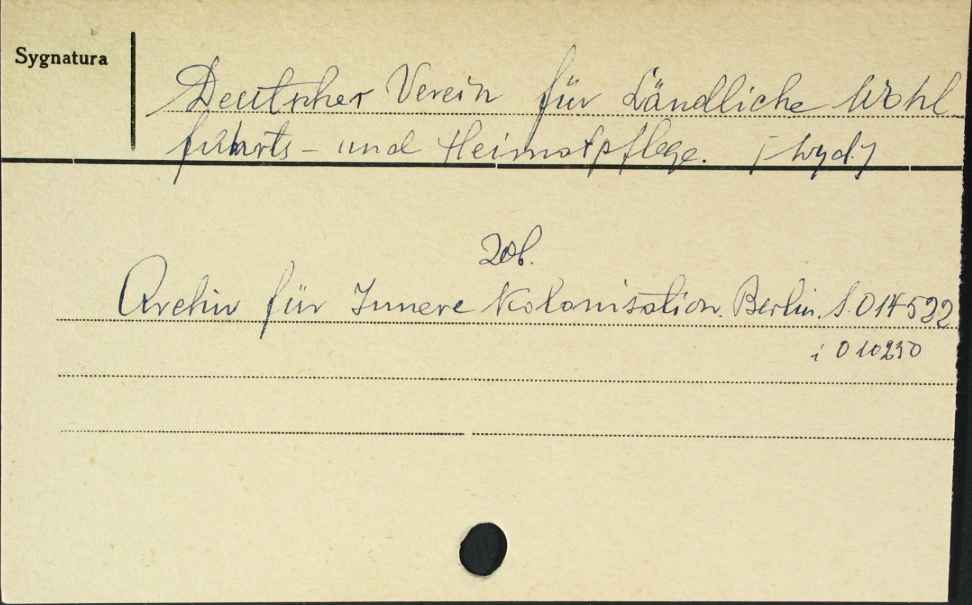 Sygnatura
Deutscher Verein für Ländliche Wohl
fahrts - und Heimatpflege. /-wyd./
zob.
Archiv für Innere Kolonisation. Berlin. S. 014522
i 010230